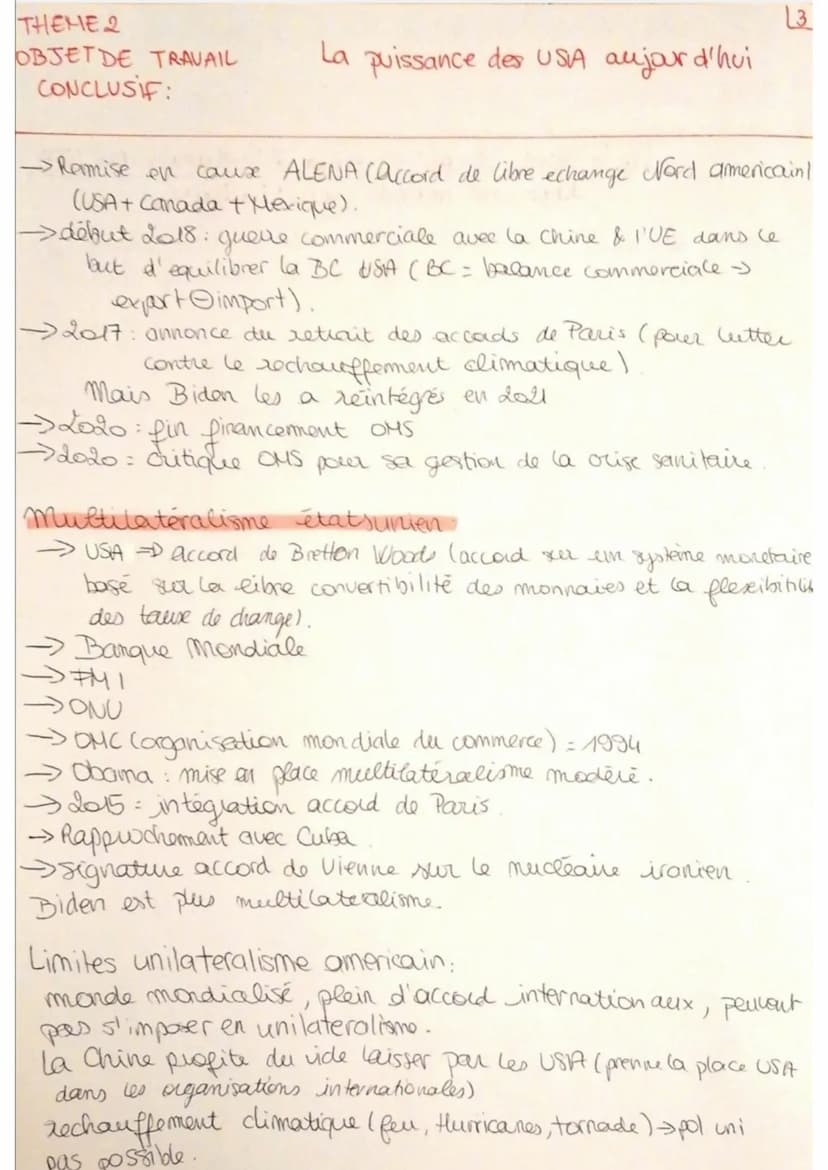 THEME 2
L3
OBJET DE TRAVAIL La puissance des USA aujourd'hui
CONCLUSIF:
→ Remise en cause ALENA (Accord de libre echange Nord americain)
(USA + Canada + Mexique).
→ début 2018: guerre commerciale avec la Chine & l'UE dans le
but d'equilibrer la BC USA (BC = balance commerciale →
export ⊖ import).
→ 2017: annonce du retrait des accords de Paris (pour lutter
contre le rechauffement climatique)
Mais Biden les a réintégrés en 2021
→ 2020: fin financement OMS
→ 2020 = critique OMS pour sa gestion de la crise sanitaire.
Multilatéralisme étatsunien
→ USA ⇒ accord de Bretton Woods (accord sur un système monetaire
basé sur la libre convertibilité des monnaies et la flexibilité
des taux de change).
→ Banque Mondiale
→ FMI
→ ONU
→ OMC (organisation mondiale du commerce) = 1994
→ Obama : mise en place multilatéralisme modéré.
→ 2015 = intégration accord de Paris
→ Rapprochement avec Cuba
→ signature accord de Vienne sur le nucléaire iranien.
Biden est plus multilateralisme.
Limites unilateralisme americain:
monde mondialisé, plein d'accord internationaux, peuvent
pas s'imposer en unilateralisme.
La Chine profite du vide laisser par les USA (prenne la place USA
dans les organisations internationales)
rechauffement climatique (feu, Hurricanes, tornade) → pol uni
pas possible.